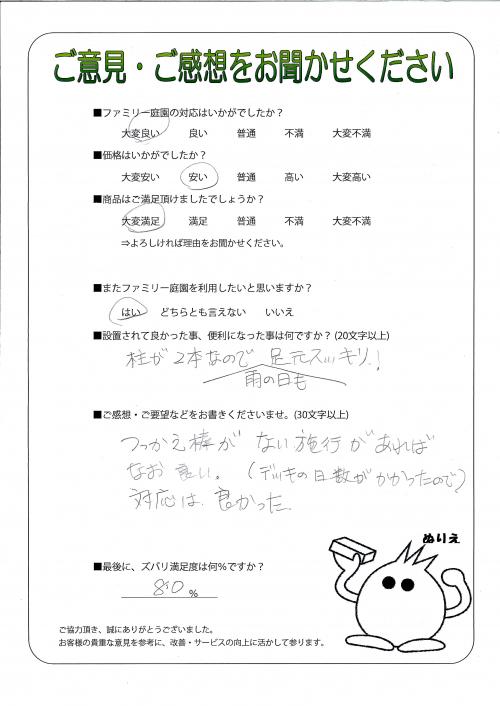 ご意見・ご感想をお聞かせください
■ファミリー庭園の対応はいかがでしたか？
大変良い　良い　普通　不満　大変不満
■価格はいかがでしたか？
大変安い　安い　普通　高い　大変高い
■商品はご満足頂けましたでしょうか？
大変満足　満足　普通　不満　大変不満
⇒よろしければ理由をお聞かせください。
■またファミリー庭園を利用したいと思いますか？
はい　どちらとも言えない　いいえ
■設置されて良かった事、便利になった事は何ですか？(20文字以上)
柱が2本なので 足元スッキリ！
雨の日も
■ご感想・ご要望などをお書きくださいませ。(30文字以上)
つっかえ棒が ない施行があれば
なお良い。(デッキの日数がかかったので)
対応は 良かった.
ぬりえ
■最後に、ズバリ満足度は何%ですか？
80 %
ご協力頂き、誠にありがとうございました。
お客様の貴重な意見を参考に、改善・サービスの向上に活かして参ります。